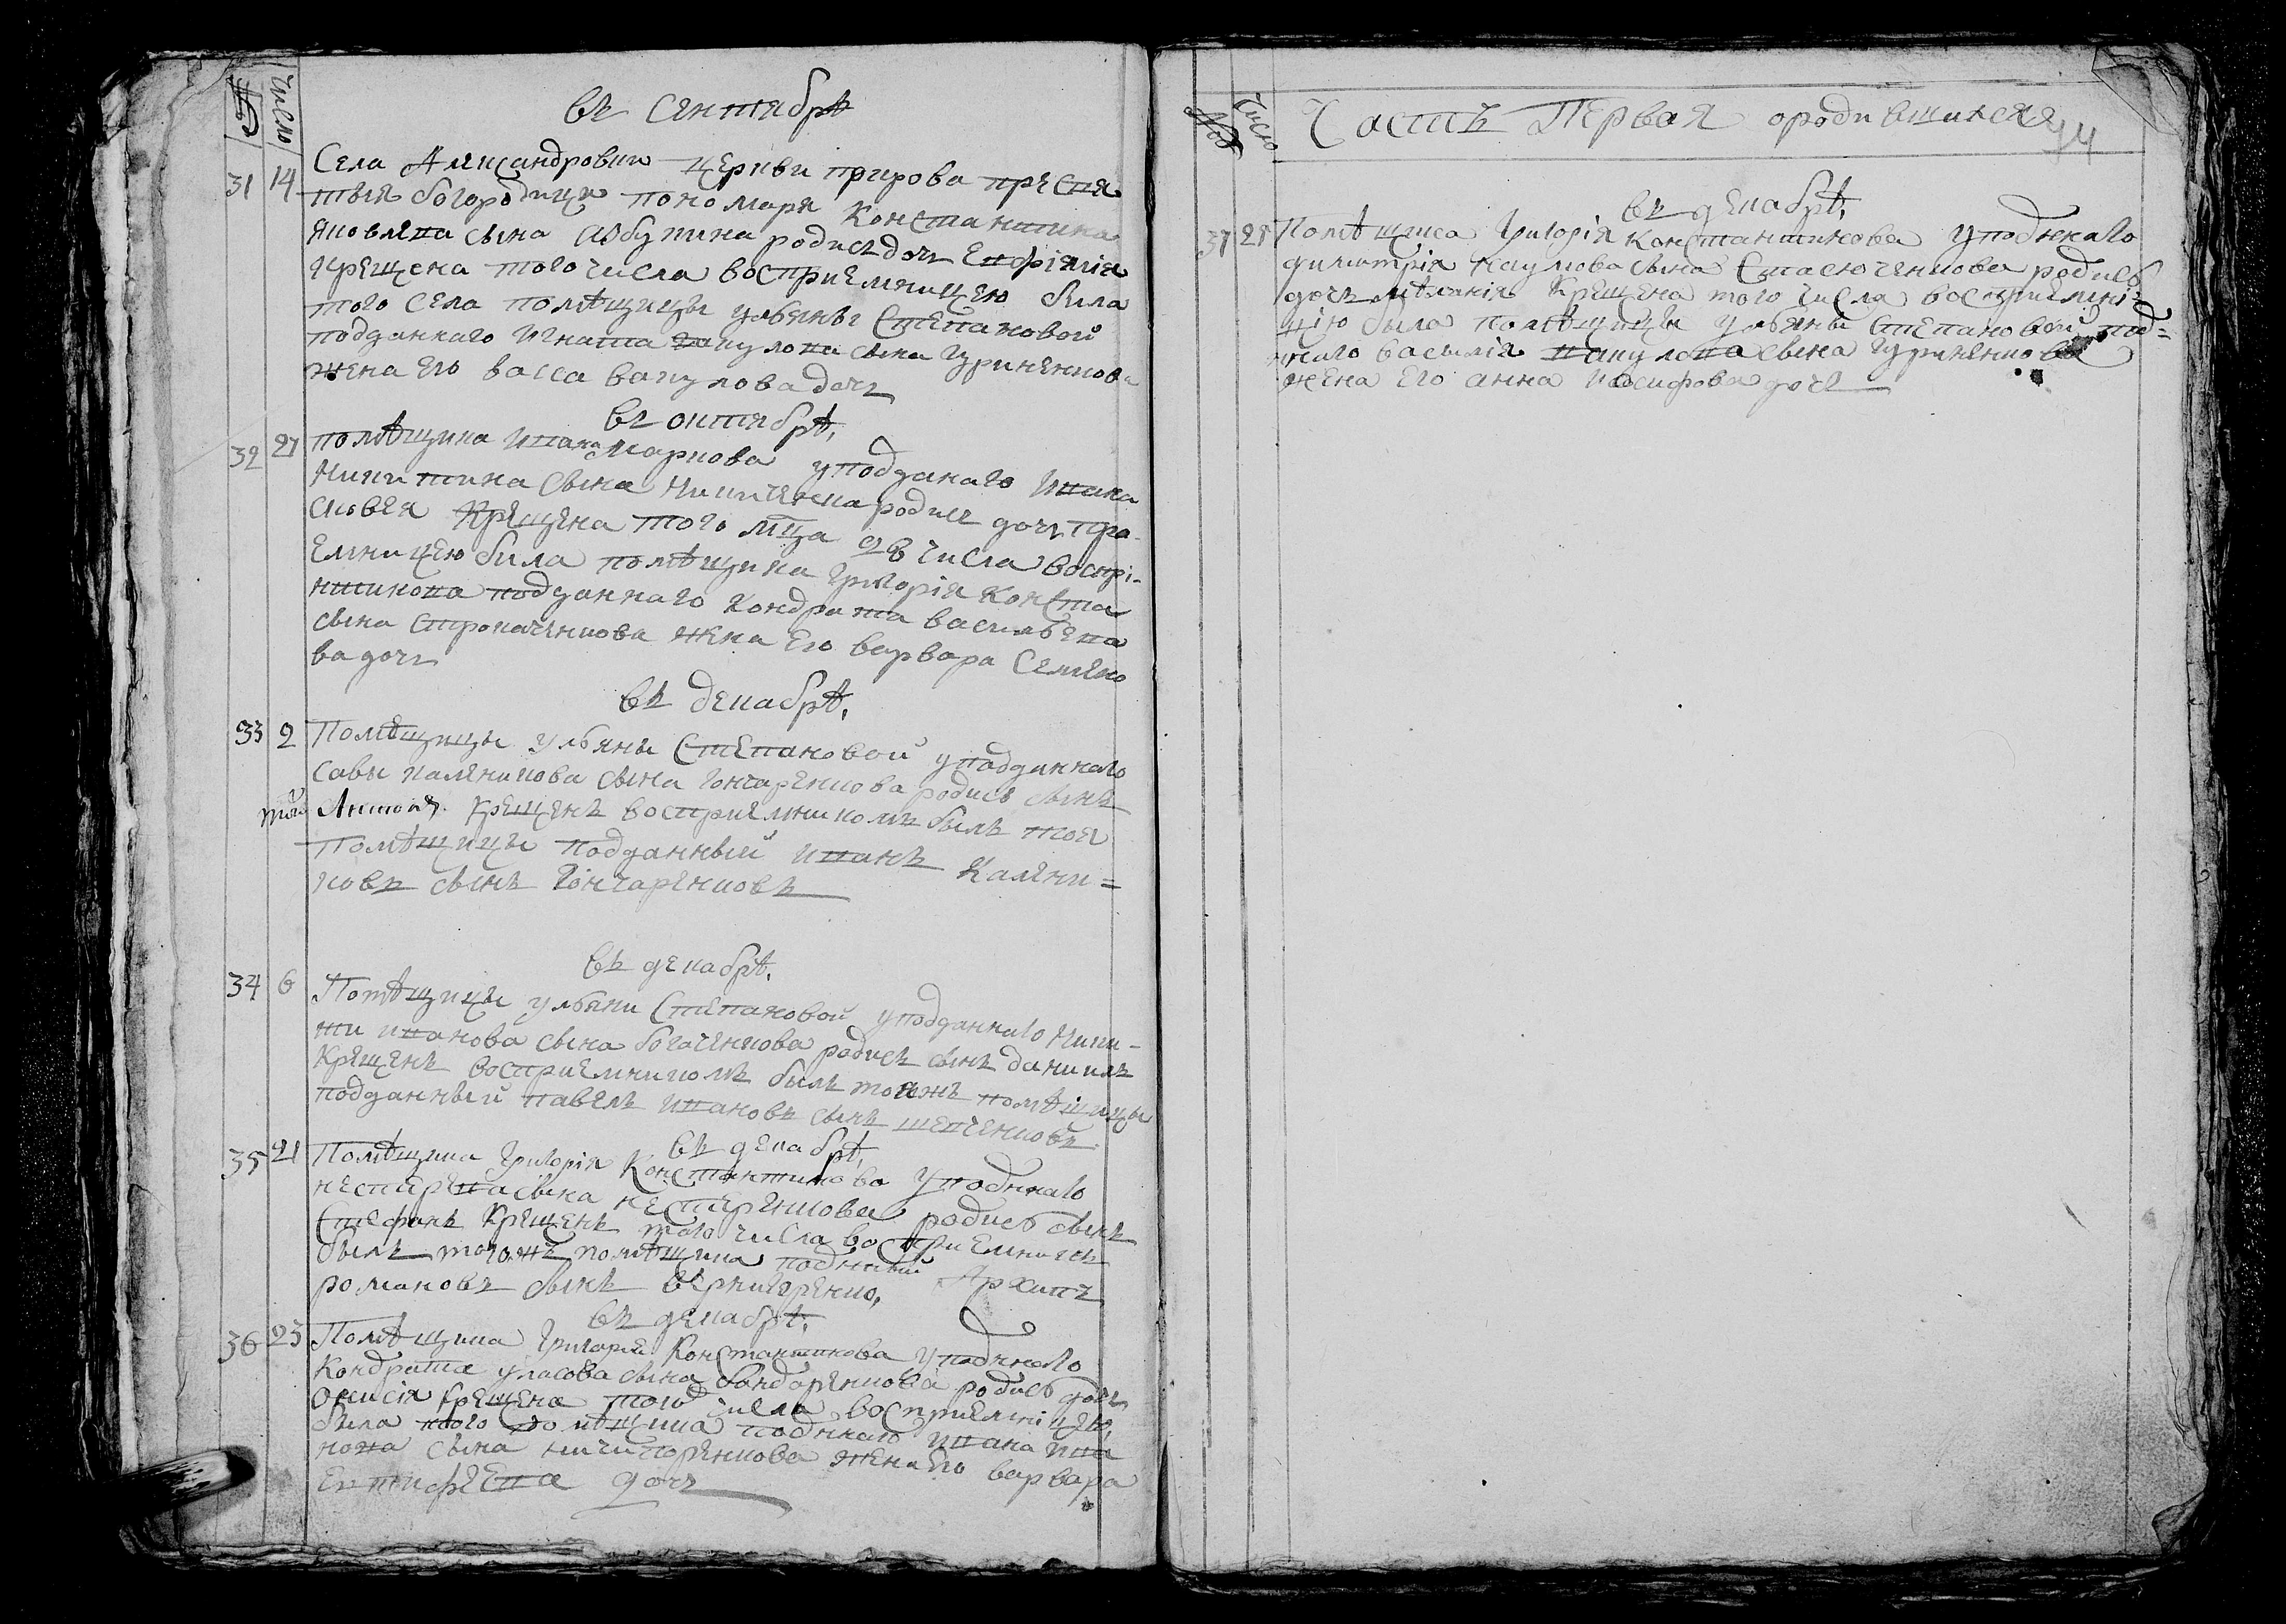 №
число
въ Сентябрѣ
31 14 Села Александровки церкви покрова пресвя
тыя богородици пономаря Константина
Яковлева сына родись дочь Евфимія
крещена того числа восприемницею была
того села помѣщицы ульяны Степановой
подданнаго Игната вакулова сына Гуриненкова
жена его васса вакулова дочь
въ октябрѣ,
32 27 помѣщика ивана Маркова у подданаго ивана
Никитина сына Никиченка родись дочь пра
сковея крещена того мца 28 числа воспрі-
емницею была помѣщика Григорія Конста
нтинова подданнаго кондрата васильева
сына жена его варвара Семено
ва дочь
въ декабрѣ,
33 2 Помѣщицы ульяны Степановой у подданнаго
Савы каленикова сына Гончаренкова родись сынъ
Антоній крещенъ восприемникомъ былъ тоя
помѣщицы подданный иванъ Калени=
ковъ сынъ Гончаренковъ
въ декабрѣ,
34 6 Помѣщицы ульяни Степановой у подданнаго Ники-
ти иванова сына богаченкова родись сынъ даниилъ
Крещенъ восприемникомъ былъ тояжъ помѣщицы
подданный павелъ ивановъ сынъ шевченковъ
въ декабрѣ,
35 21 Помѣщика Григорія Константинова у поднаго
сына нестеренкова родись сынъ
Стефанъ крещенъ того числа восприемникъ
былъ тогожъ помѣщика подный Архипъ
романовъ сынъ вернигоренко,
въ декабрѣ,
36 23 Помѣщика Григорія Константинова у поднаго
Кондрата уласова сына бондаренкова родись дочь
крещена того числа восприемніцею,
была того помѣщика поднаго ивана ива
нова сына ничипоренкова жена его варвара
дочь
№
число
Часть Первая о родившихся
94
въ декабрѣ,
37 25 Помѣщика Григорія Константинова у поднаго
димитрія наумова сына родись
дочь меланія крещена того числа восприемні=
цію была помѣщицы ульяны Степановой под=
наго василія вакулова сына Гуриненкова
жена его анна иосифова дочь